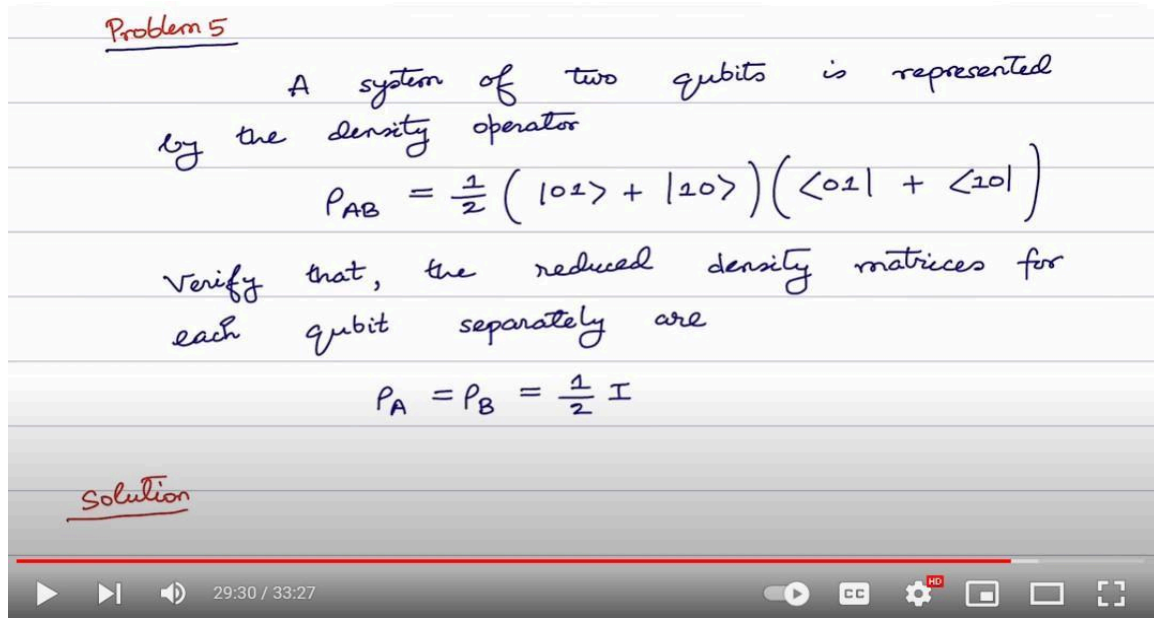 Problem 5
A system of two qubits is represented
by the density operator
ρ_AB = 1/2 ( |01> + |10> ) ( <01| + <10| )
Verify that, the reduced density matrices for
each qubit separately are
ρ_A = ρ_B = 1/2 I
Solution
29:30 / 33:27 CC HD